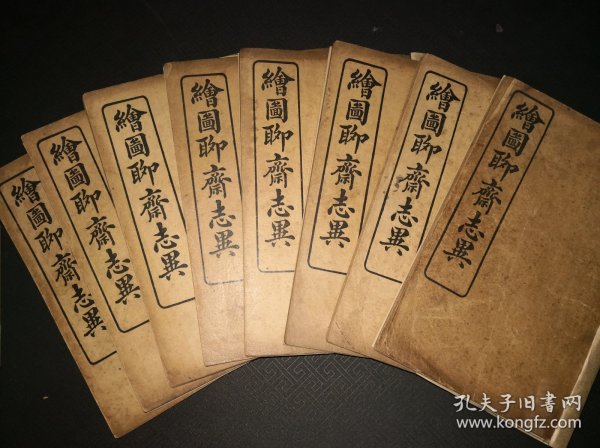 繪圖聊齋志異
繪圖聊齋志異
繪圖聊齋志異
繪圖聊齋志異
繪圖聊齋志異
繪圖聊齋志異
繪圖聊齋志異
繪圖聊齋志異
孔夫子旧书网
www.kongfz.com